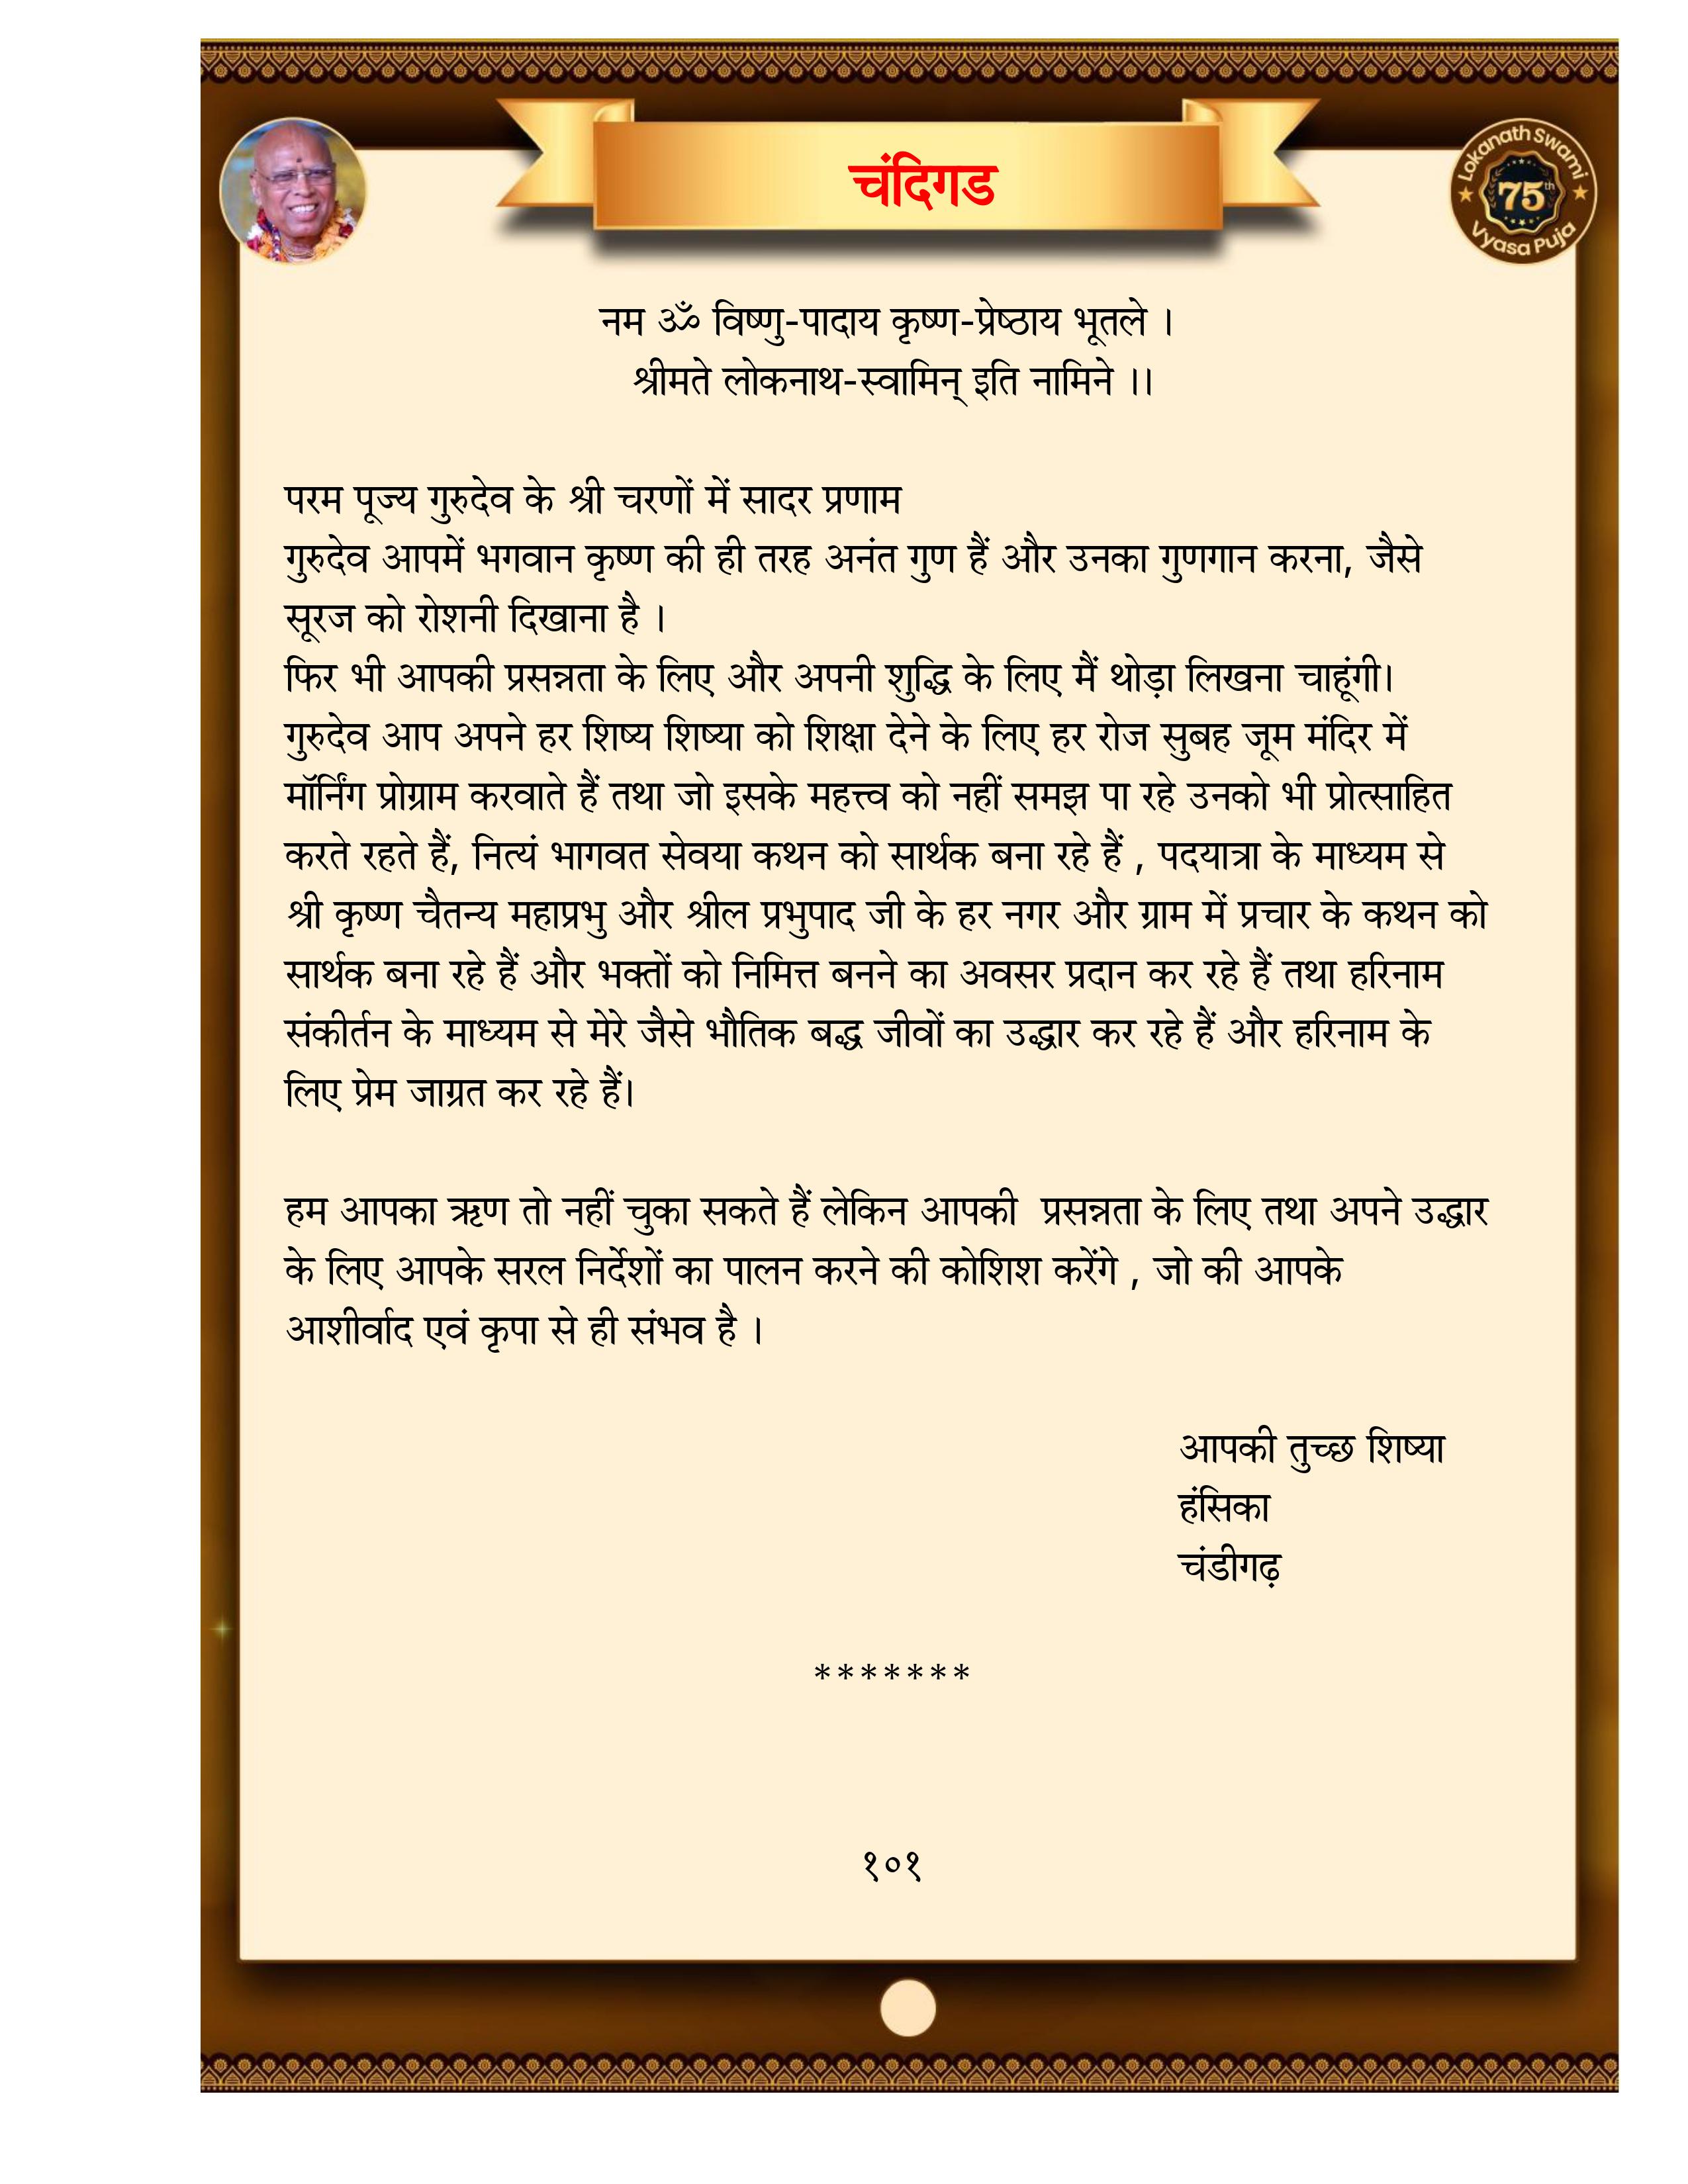 चंदिगड
Lokanath Swami
75th
Vyasa Puja
नम ॐ विष्णु-पादाय कृष्ण-प्रेष्ठाय भूतले ।
श्रीमते लोकनाथ-स्वामिन् इति नामिने ।।
परम पूज्य गुरुदेव के श्री चरणों में सादर प्रणाम
गुरुदेव आपमें भगवान कृष्ण की ही तरह अनंत गुण हैं और उनका गुणगान करना, जैसे
सूरज को रोशनी दिखाना है ।
फिर भी आपकी प्रसन्नता के लिए और अपनी शुद्धि के लिए मैं थोड़ा लिखना चाहूंगी।
गुरुदेव आप अपने हर शिष्य शिष्या को शिक्षा देने के लिए हर रोज सुबह जूम मंदिर में
मॉर्निंग प्रोग्राम करवाते हैं तथा जो इसके महत्त्व को नहीं समझ पा रहे उनको भी प्रोत्साहित
करते रहते हैं, नित्यं भागवत सेवया कथन को सार्थक बना रहे हैं , पदयात्रा के माध्यम से
श्री कृष्ण चैतन्य महाप्रभु और श्रील प्रभुपाद जी के हर नगर और ग्राम में प्रचार के कथन को
सार्थक बना रहे हैं और भक्तों को निमित्त बनने का अवसर प्रदान कर रहे हैं तथा हरिनाम
संकीर्तन के माध्यम से मेरे जैसे भौतिक बद्ध जीवों का उद्धार कर रहे हैं और हरिनाम के
लिए प्रेम जाग्रत कर रहे हैं।
हम आपका ऋण तो नहीं चुका सकते हैं लेकिन आपकी  प्रसन्नता के लिए तथा अपने उद्धार
के लिए आपके सरल निर्देशों का पालन करने की कोशिश करेंगे , जो की आपके
आशीर्वाद एवं कृपा से ही संभव है ।
आपकी तुच्छ शिष्या
हंसिका
चंडीगढ़
*******
१०१